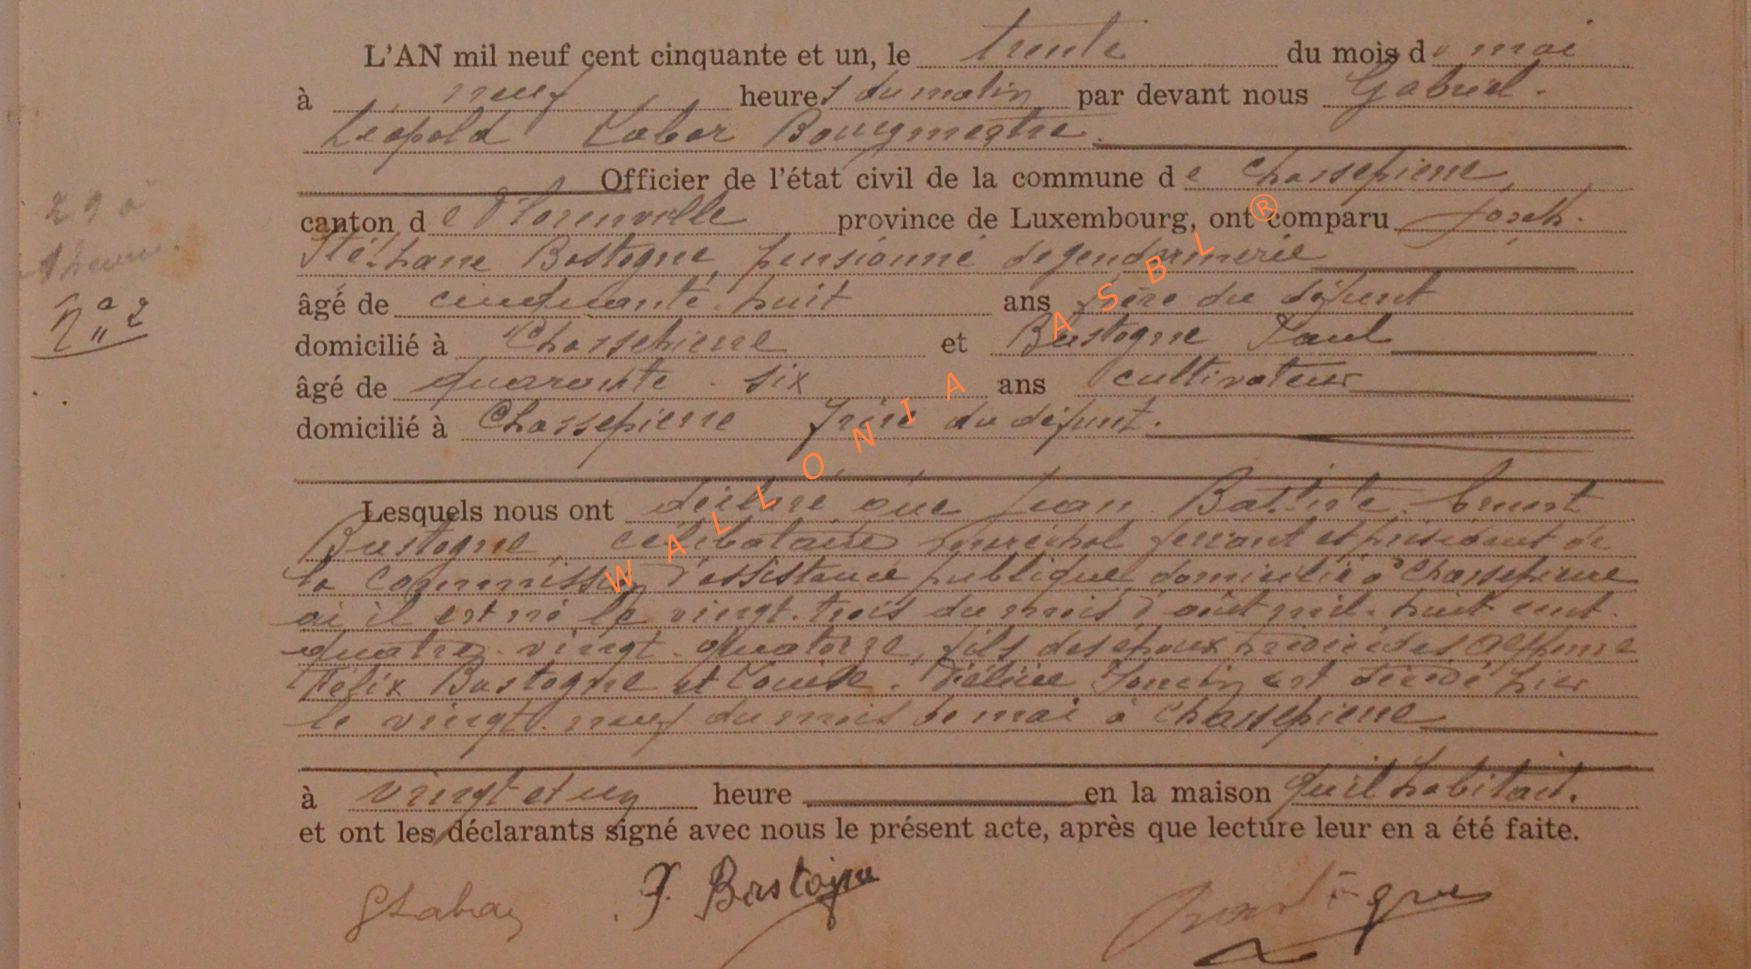 L'AN mil neuf cent cinquante et un, le trente du mois de mai
à neuf heures du matin par devant nous Gabriel
Léopold Bourgmestre
Officier de l'état civil de la commune de Chassepierre,
canton de Florenville province de Luxembourg, ont comparu Joseph
Stéphane Bastogne, pensionné de gendarmerie
âgé de cinquante-huit ans frère du défunt
domicilié à Chassepierre et Bastogne Paul
âgé de quarante-six ans cultivateur
domicilié à Chassepierre frère du défunt.
Lesquels nous ont déclaré que Jean Baptiste Ernest
Bastogne, célibataire maréchal ferrant et président de
la Commission d'assistance publique, domicilié à Chassepierre
où il est né le vingt-trois du mois d'août mil huit cent
quatre-vingt-quatorze, fils des époux prédécédés
Félix Bastogne et Louise est décédé hier
le vingt-neuf du mois de mai à Chassepierre
à vingt et un heure en la maison qu'il habitait.
et ont les déclarants signé avec nous le présent acte, après que lecture leur en a été faite.
J. Bastogne
Bastogne
29 à
N° 2
WALLONIA ASBL ®